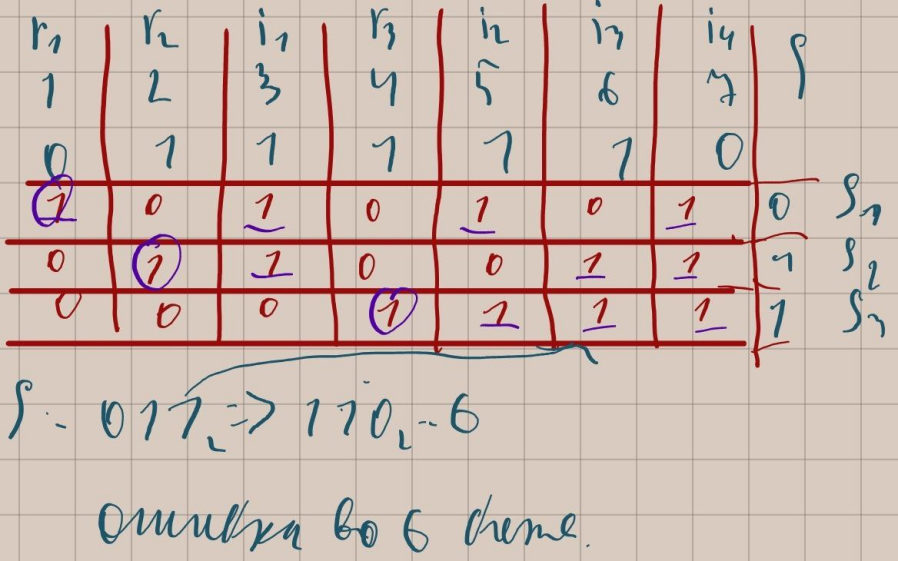 r1 r2 i1 r3 i2 i3 i4 S
1 2 3 4 5 6 7
0 1 1 1 1 1 0
1 0 1 0 1 0 1 0 S1
0 1 1 0 0 1 1 1 S2
0 0 0 1 1 1 1 1 S3
S = 011₂ => 110₂ = 6
Ошибка во 6